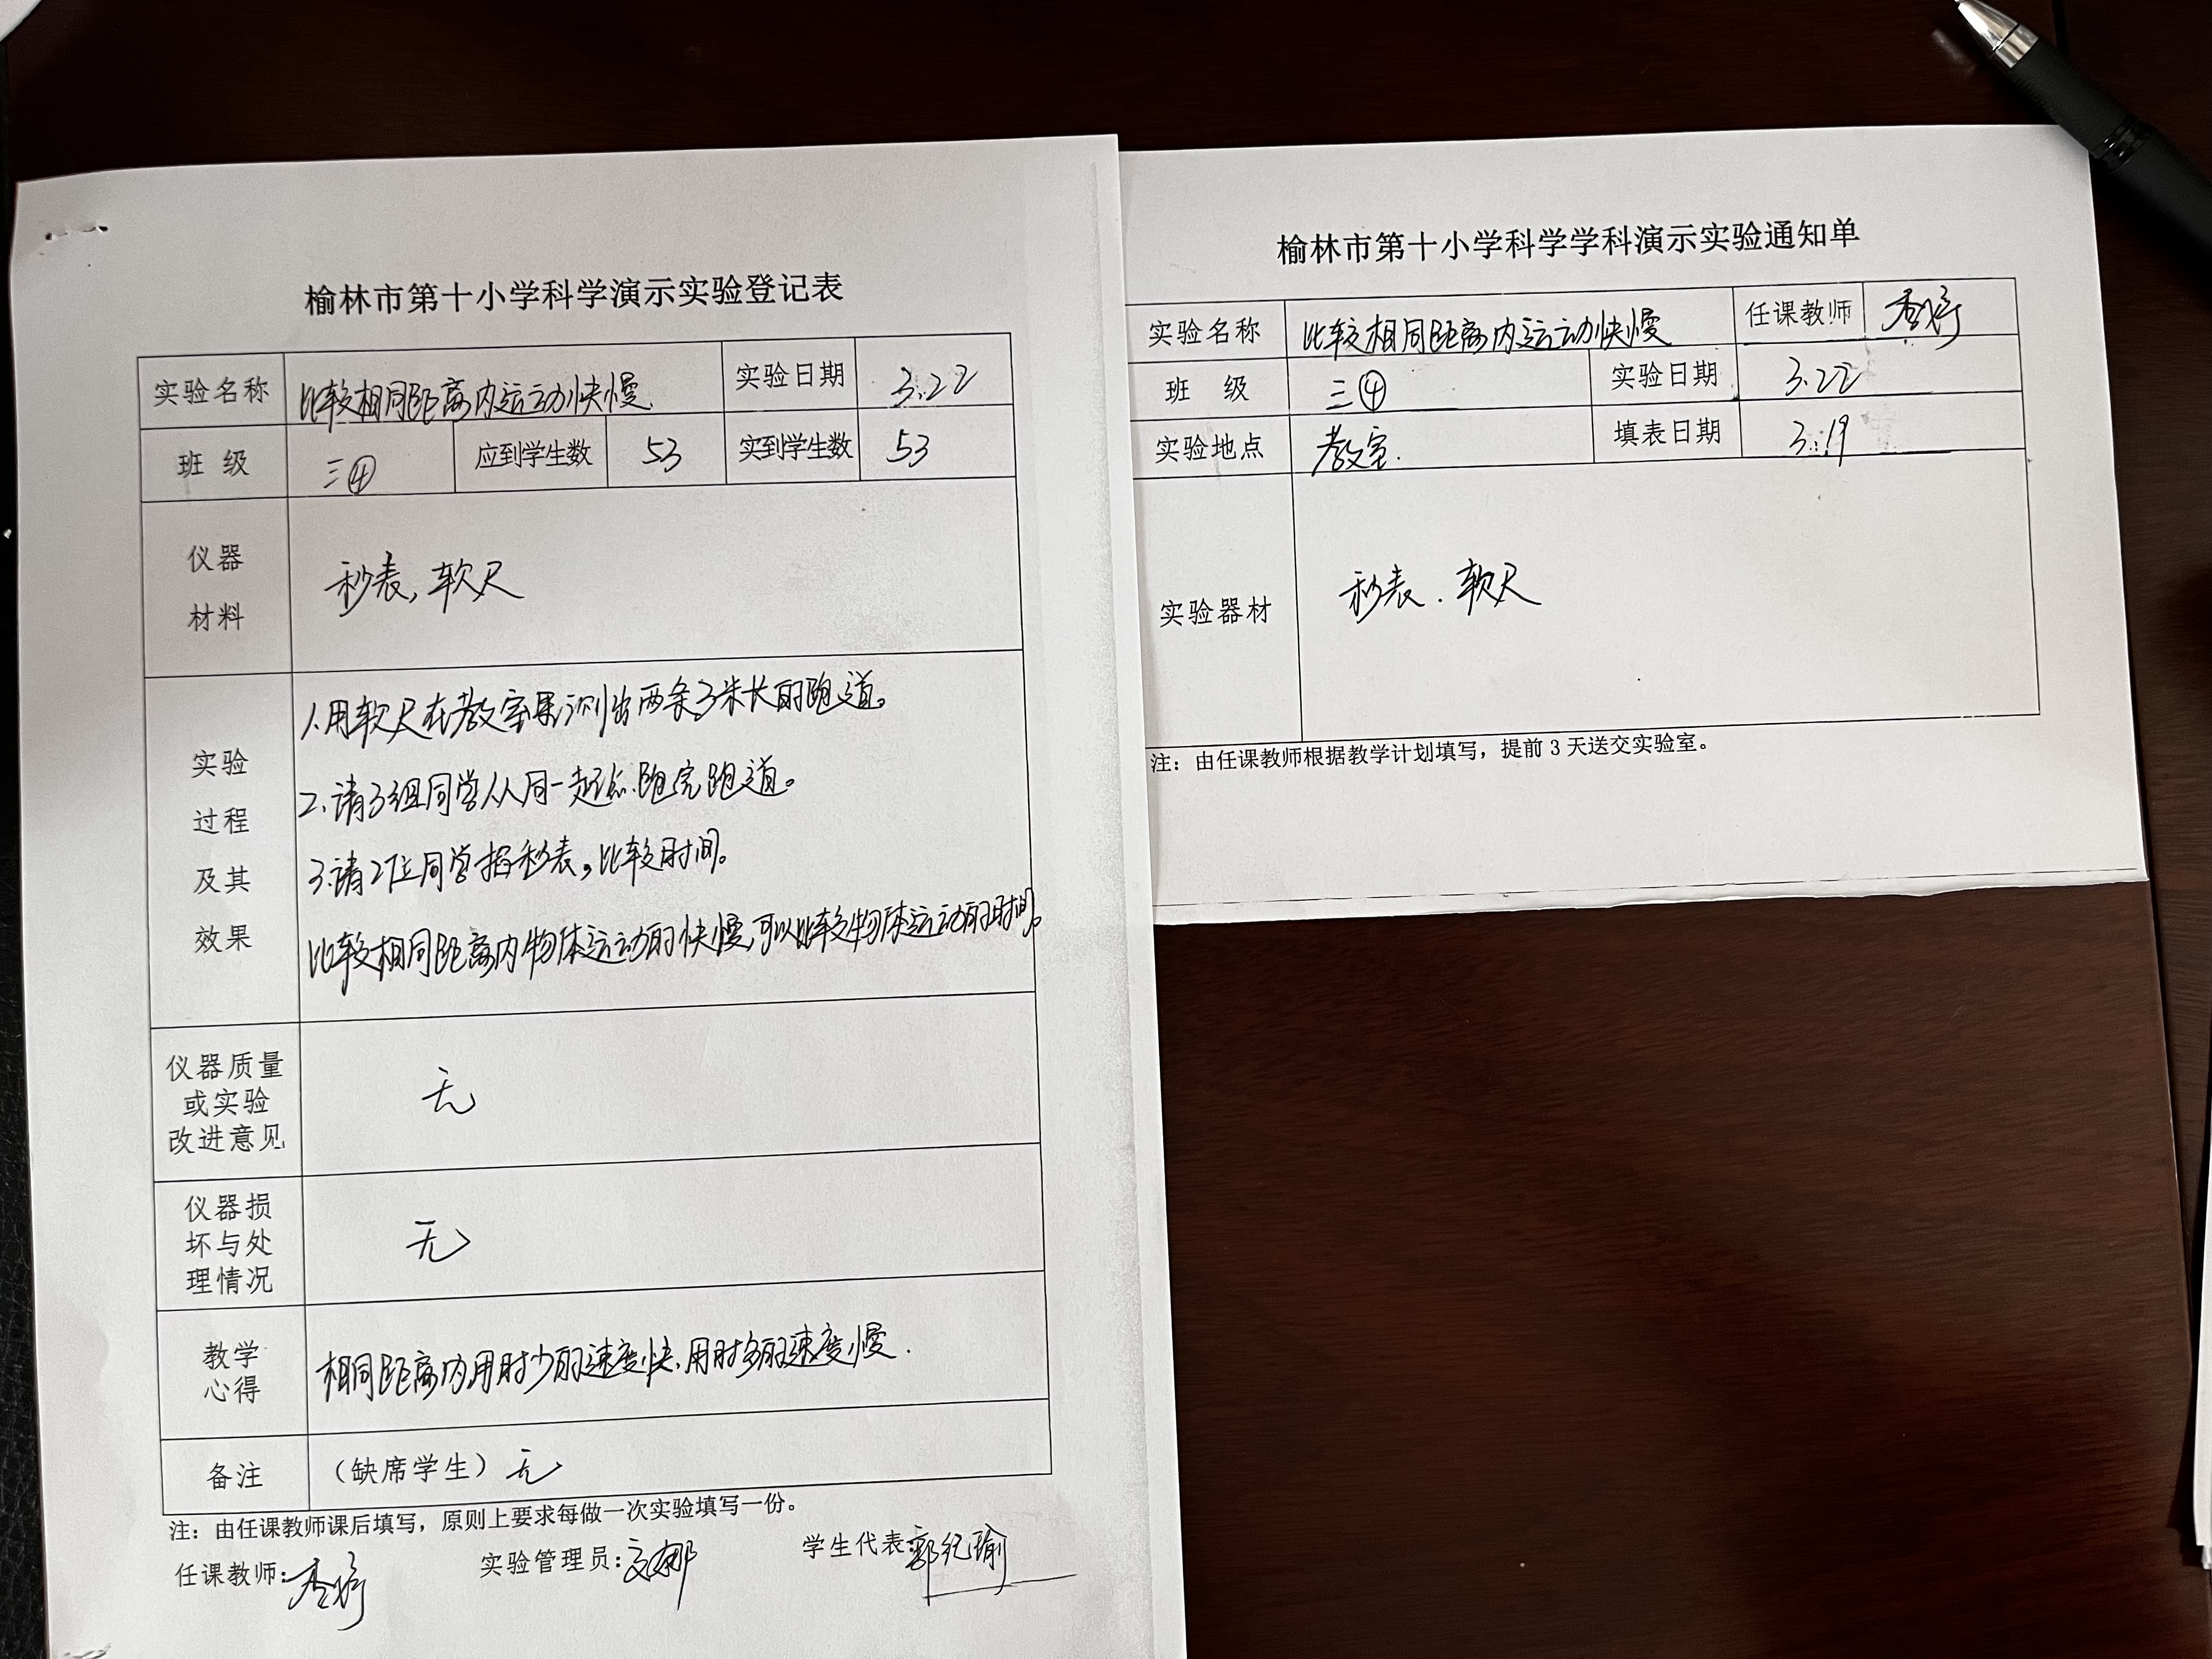 榆林市第十小学科学演示实验登记表
实验名称 比较相同距离内运动快慢. 实验日期 3.22
班 级 三④ 应到学生数 53 实到学生数 53
仪器
材料
秒表,软尺
实验
过程
及其
效果
1.用软尺在教室里测出两条3米长的跑道。
2.请3组同学从同一起点跑完跑道。
3.请2位同学掐秒表,比较时间。
比较相同距离内物体运动的快慢,可以比较物体运动的时间。
仪器质量
或实验
改进意见
无
仪器损
坏与处
理情况
无
教学
心得
相同距离内,用时少的速度快,用时多的速度慢.
备注 (缺席学生) 无
注:由任课教师课后填写,原则上要求每做一次实验填写一份。
任课教师: 实验管理员: 学生代表: 郭纪瑜
榆林市第十小学科学学科演示实验通知单
实验名称 比较相同距离内运动快慢 任课教师
班 级 三④ 实验日期 3.22
实验地点 教室. 填表日期 3.19
实验器材 秒表.软尺
注:由任课教师根据教学计划填写,提前 3 天送交实验室。